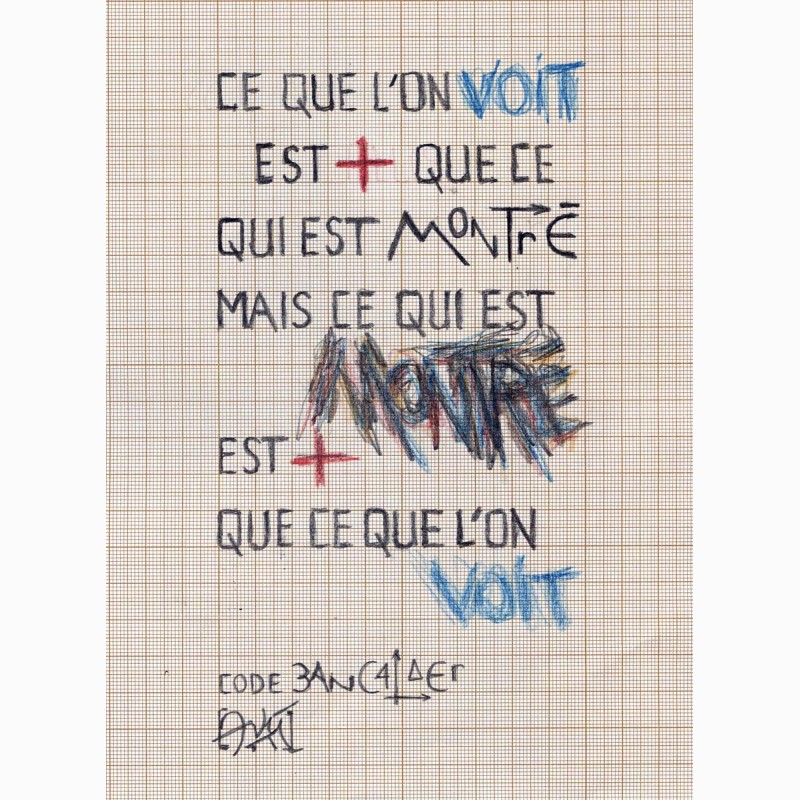 CE QUE L'ON VOIT
EST + QUE CE
QUI EST MONTRÉ
MAIS CE QUI EST
MONTRE
EST +
QUE CE QUE L'ON
VOIT
CODE